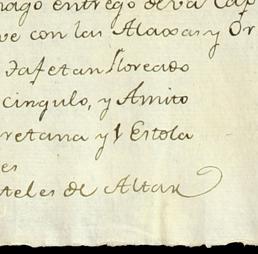 hago entrego de va Cap
ve con las Alaxas y Or
Tafetan floreado
cingulo, y Amito
retana y 1 Estola
es
teles de Altar